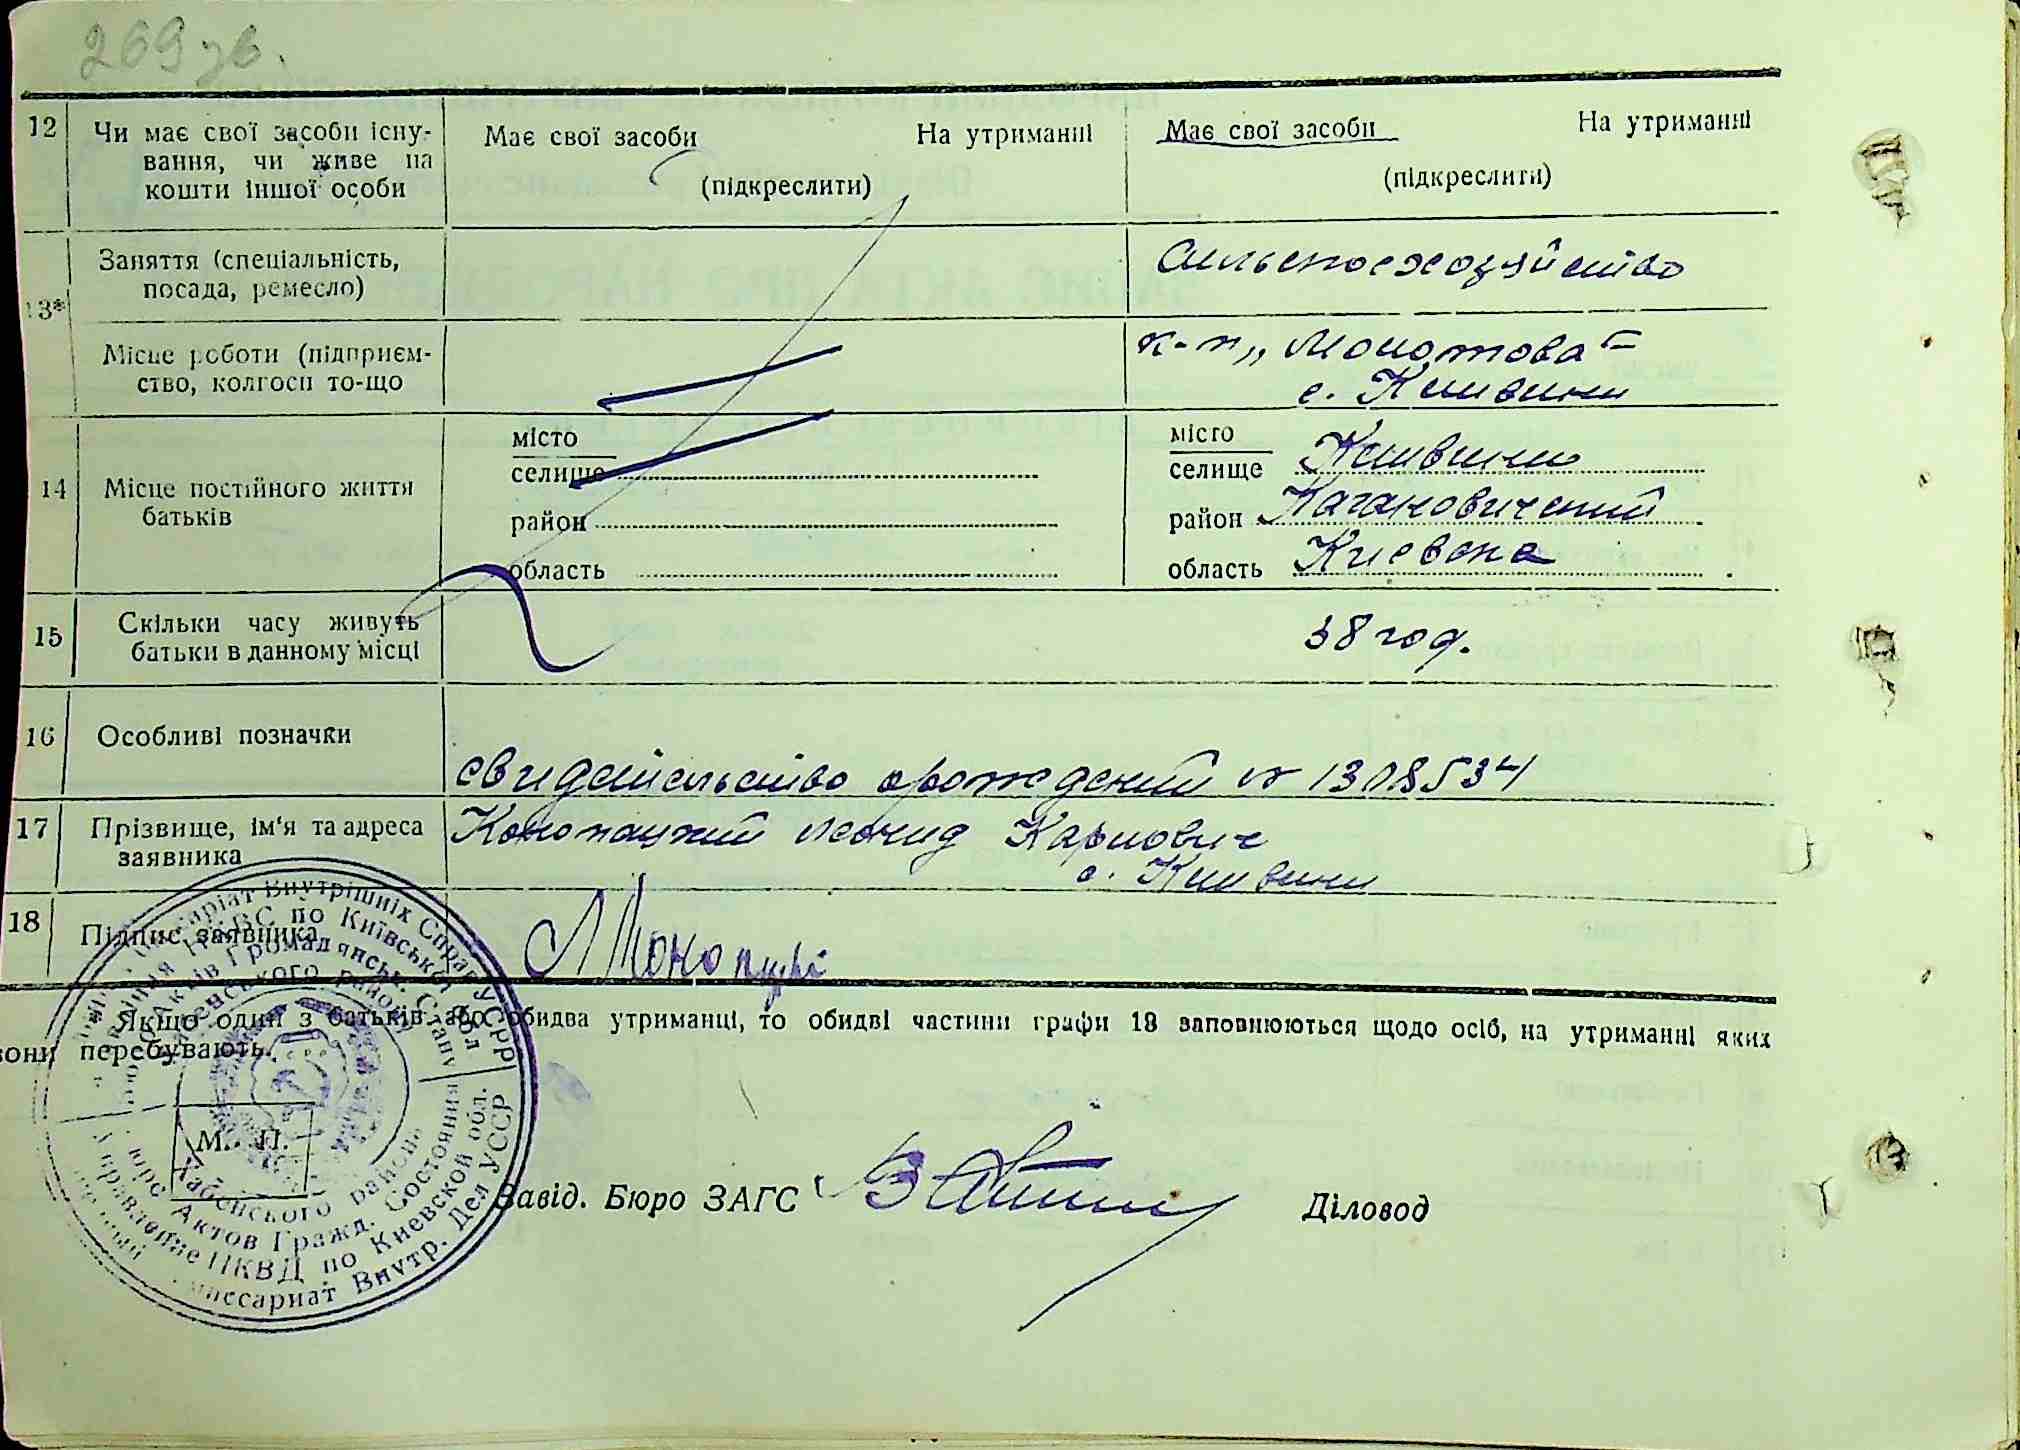 269 зв.
12
Чи має свої засоби існу-
вання, чи живе на
кошти іншої особи
Має свої засоби На утриманні
(підкреслити)
Має свої засоби На утриманні
(підкреслити)
13*
Заняття (спеціальність,
посада, ремесло)
Сельскохозяйство
Місце роботи (підприєм-
ство, колгосп то-що
к-п „Молотова"
с. Кливини
14
Місце постійного життя
батьків
місто
селище
район
область
місто
селище Кливини
район Кагановический
область Киевска
15
Скільки часу живуть
батьки в данному місці
38 год.
16
Особливі позначки
свидетельство орождений №
17
Прізвище, ім'я та адреса
заявника
Конопацкий Леонид Карпович
с. Кливини
18
Підпис заявника
Якщо один з батьків або обидва утриманці, то обидві частини графи 18 заповнюються щодо осіб, на утриманні яких
вони перебувають.
М. П.
Завід. Бюро ЗАГС
Діловод
Внутрішніх Справ УСРР
НКВС по Київській обл
Актів Громадянськ. Стану
району
Хабенського района
Актов Гражд. Состояния
Управление НКВД по Киевской обл.
Внутр. Дел УССР